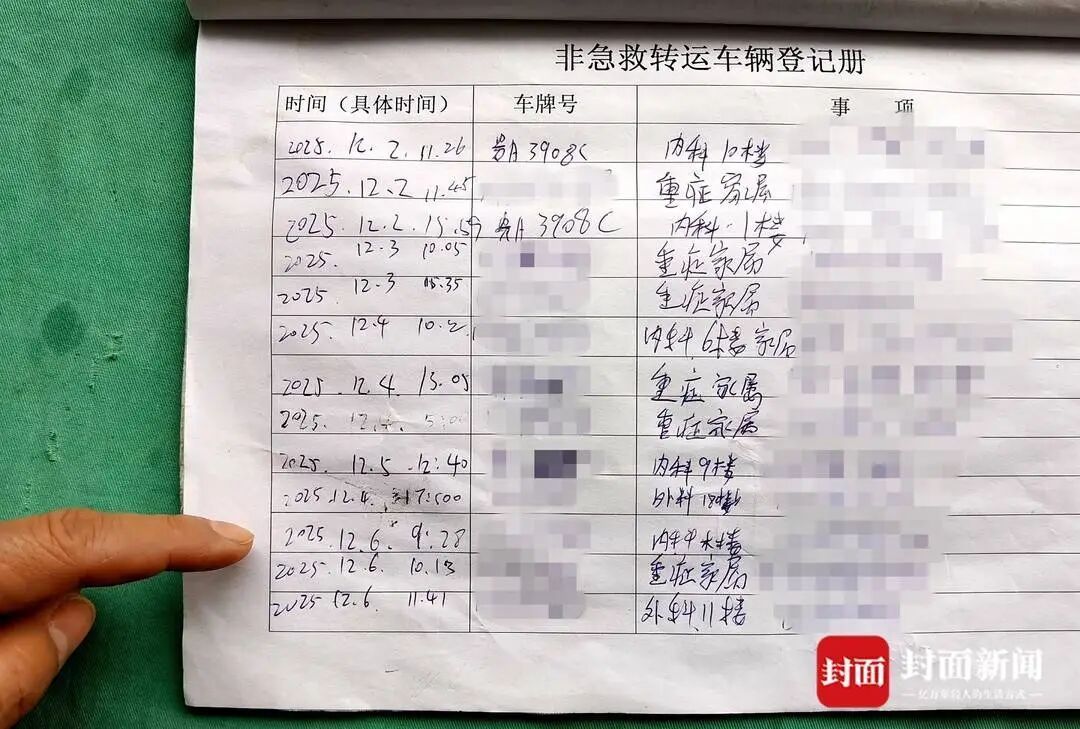 非急救转运车辆登记册
时间（具体时间） 车牌号 事 项
2025. 12. 2. 11.26 贵A 3908C 内科 10楼
2025.12.2 11.45 重症家属
2025. 12.2. 15.59 贵A 3908C 内科.1楼
2025. 12.3 10.05 重症家属
2025 12.3 15.35 重症家属
2025. 12.4 10.2 内科.6楼家属
2025. 12.4. 15.05 重症家属
2025. 重症家属
2025. 12.5 12:40 内科9楼
2025.12.4. 17:00 外科18楼
2025.12.6. 9:28 内科 楼
2025.12.6. 10.13 重症家属
2025 12.6. 11.41 外科.11楼
封面 封面新闻
亿万年轻人的生活方式